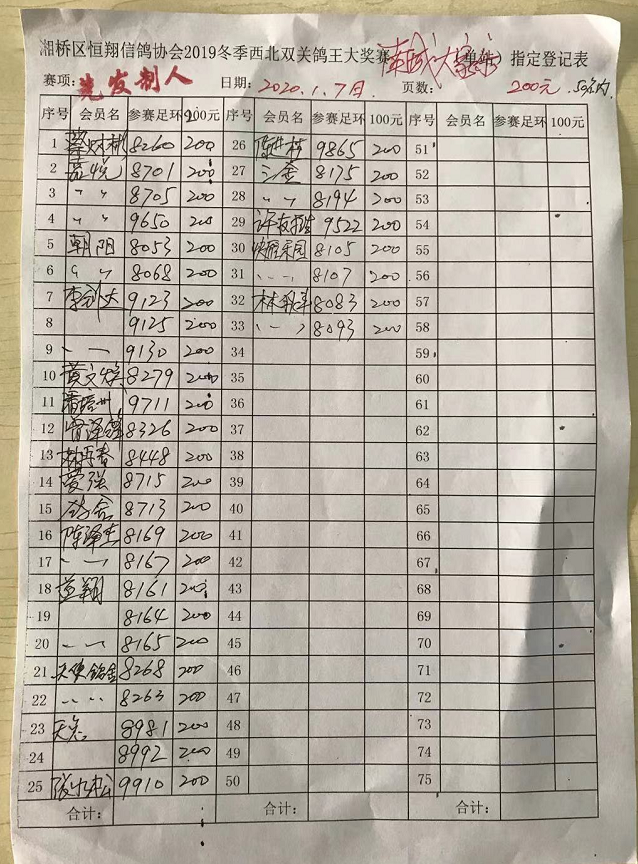 湘桥区恒翔信鸽协会2019冬季西北双关鸽王大奖赛 单性 指定登记表
赛项: 先发制人 日期: 2020.1.7日 页数: 200元 50名内
序号 会员名 参赛足环 100元 序号 会员名 参赛足环 100元 序号 会员名 参赛足环 100元
1 蔡财彬 8260 200 26 9865 200 51
2 嘉悦 8701 200 27 三金 8175 200 52
3 〃 〃 8705 200 28 〃 〃 8194 200 53
4 〃 〃 9650 200 29 9522 200 54
5 朝阳 8053 200 30 快胜乐园 8105 200 55
6 〃 〃 8068 200 31 〃 〃 8107 200 56
7 9123 200 32 8083 200 57
8 9125 200 33 〃 〃 8093 200 58
9 〃 〃 9130 200 34 59
10 黄文焕 8279 200 35 60
11 9711 200 36 61
12 曾泽锋 8326 200 37 62
13 8448 200 38 63
14 爱强 8715 200 39 64
15 8713 200 40 65
16 陈泽 8169 200 41 66
17 〃 〃 8167 200 42 67
18 翔 8161 200 43 68
19 8164 200 44 69
20 〃 〃 8165 200 45 70
21 天使鸽舍 8268 200 46 71
22 〃 〃 8263 200 47 72
23 8981 200 48 73
24 8992 200 49 74
25 9910 200 50 75
合计: 合计: 合计: